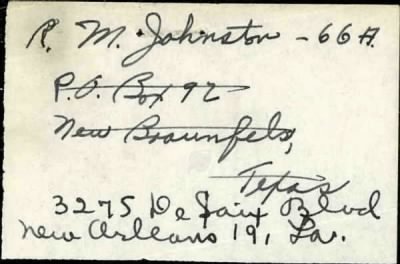 R. M. Johnston - 66A.
P.O. Box 92
New Braunfels,
Texas
3275 De Saix Blvd
New Orleans 19, La.